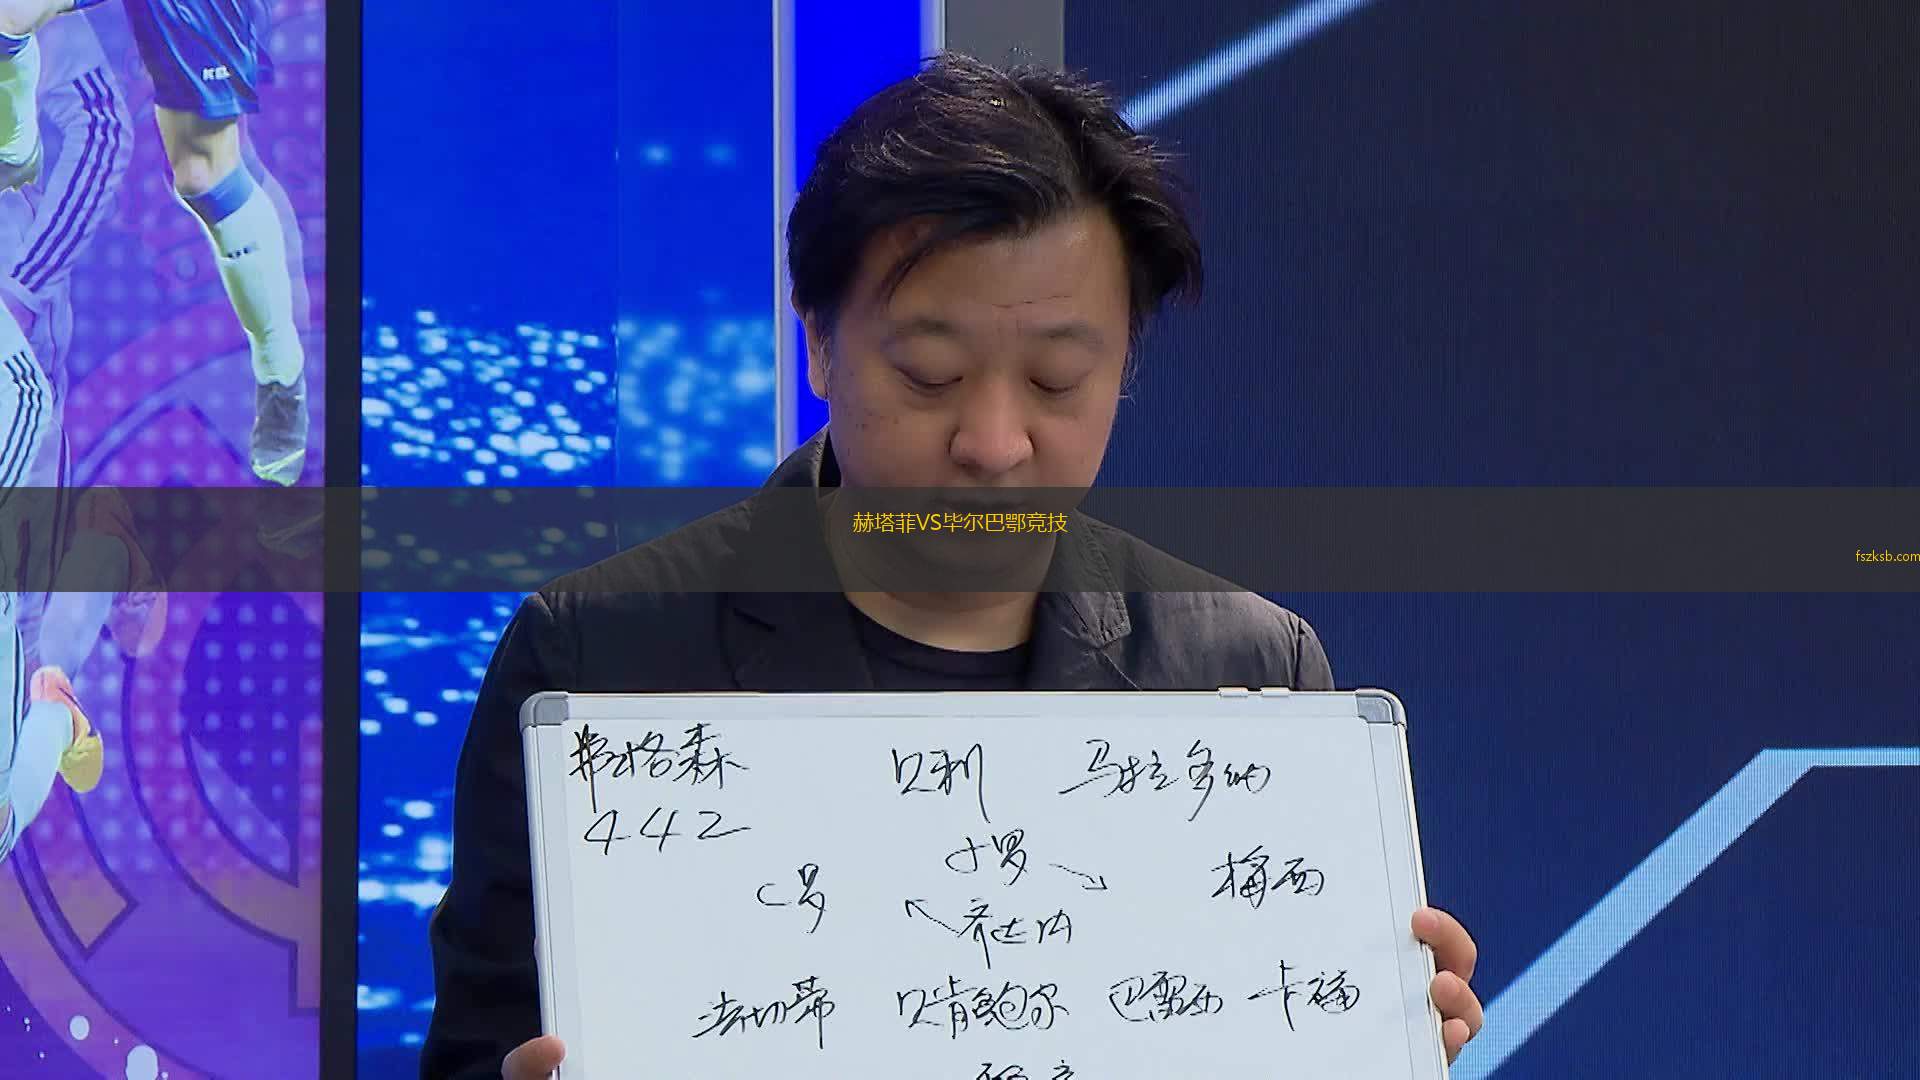 赫塔菲VS毕尔巴鄂竞技
fszksb.com
弗格森 贝利 马拉多纳
442
小罗
C罗 梅西
齐达内
法切蒂 贝肯鲍尔 巴雷西 卡福